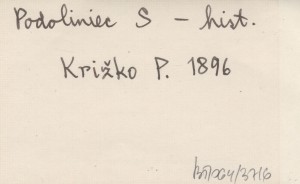 Podoliniec S - hist.
Križko P. 1896